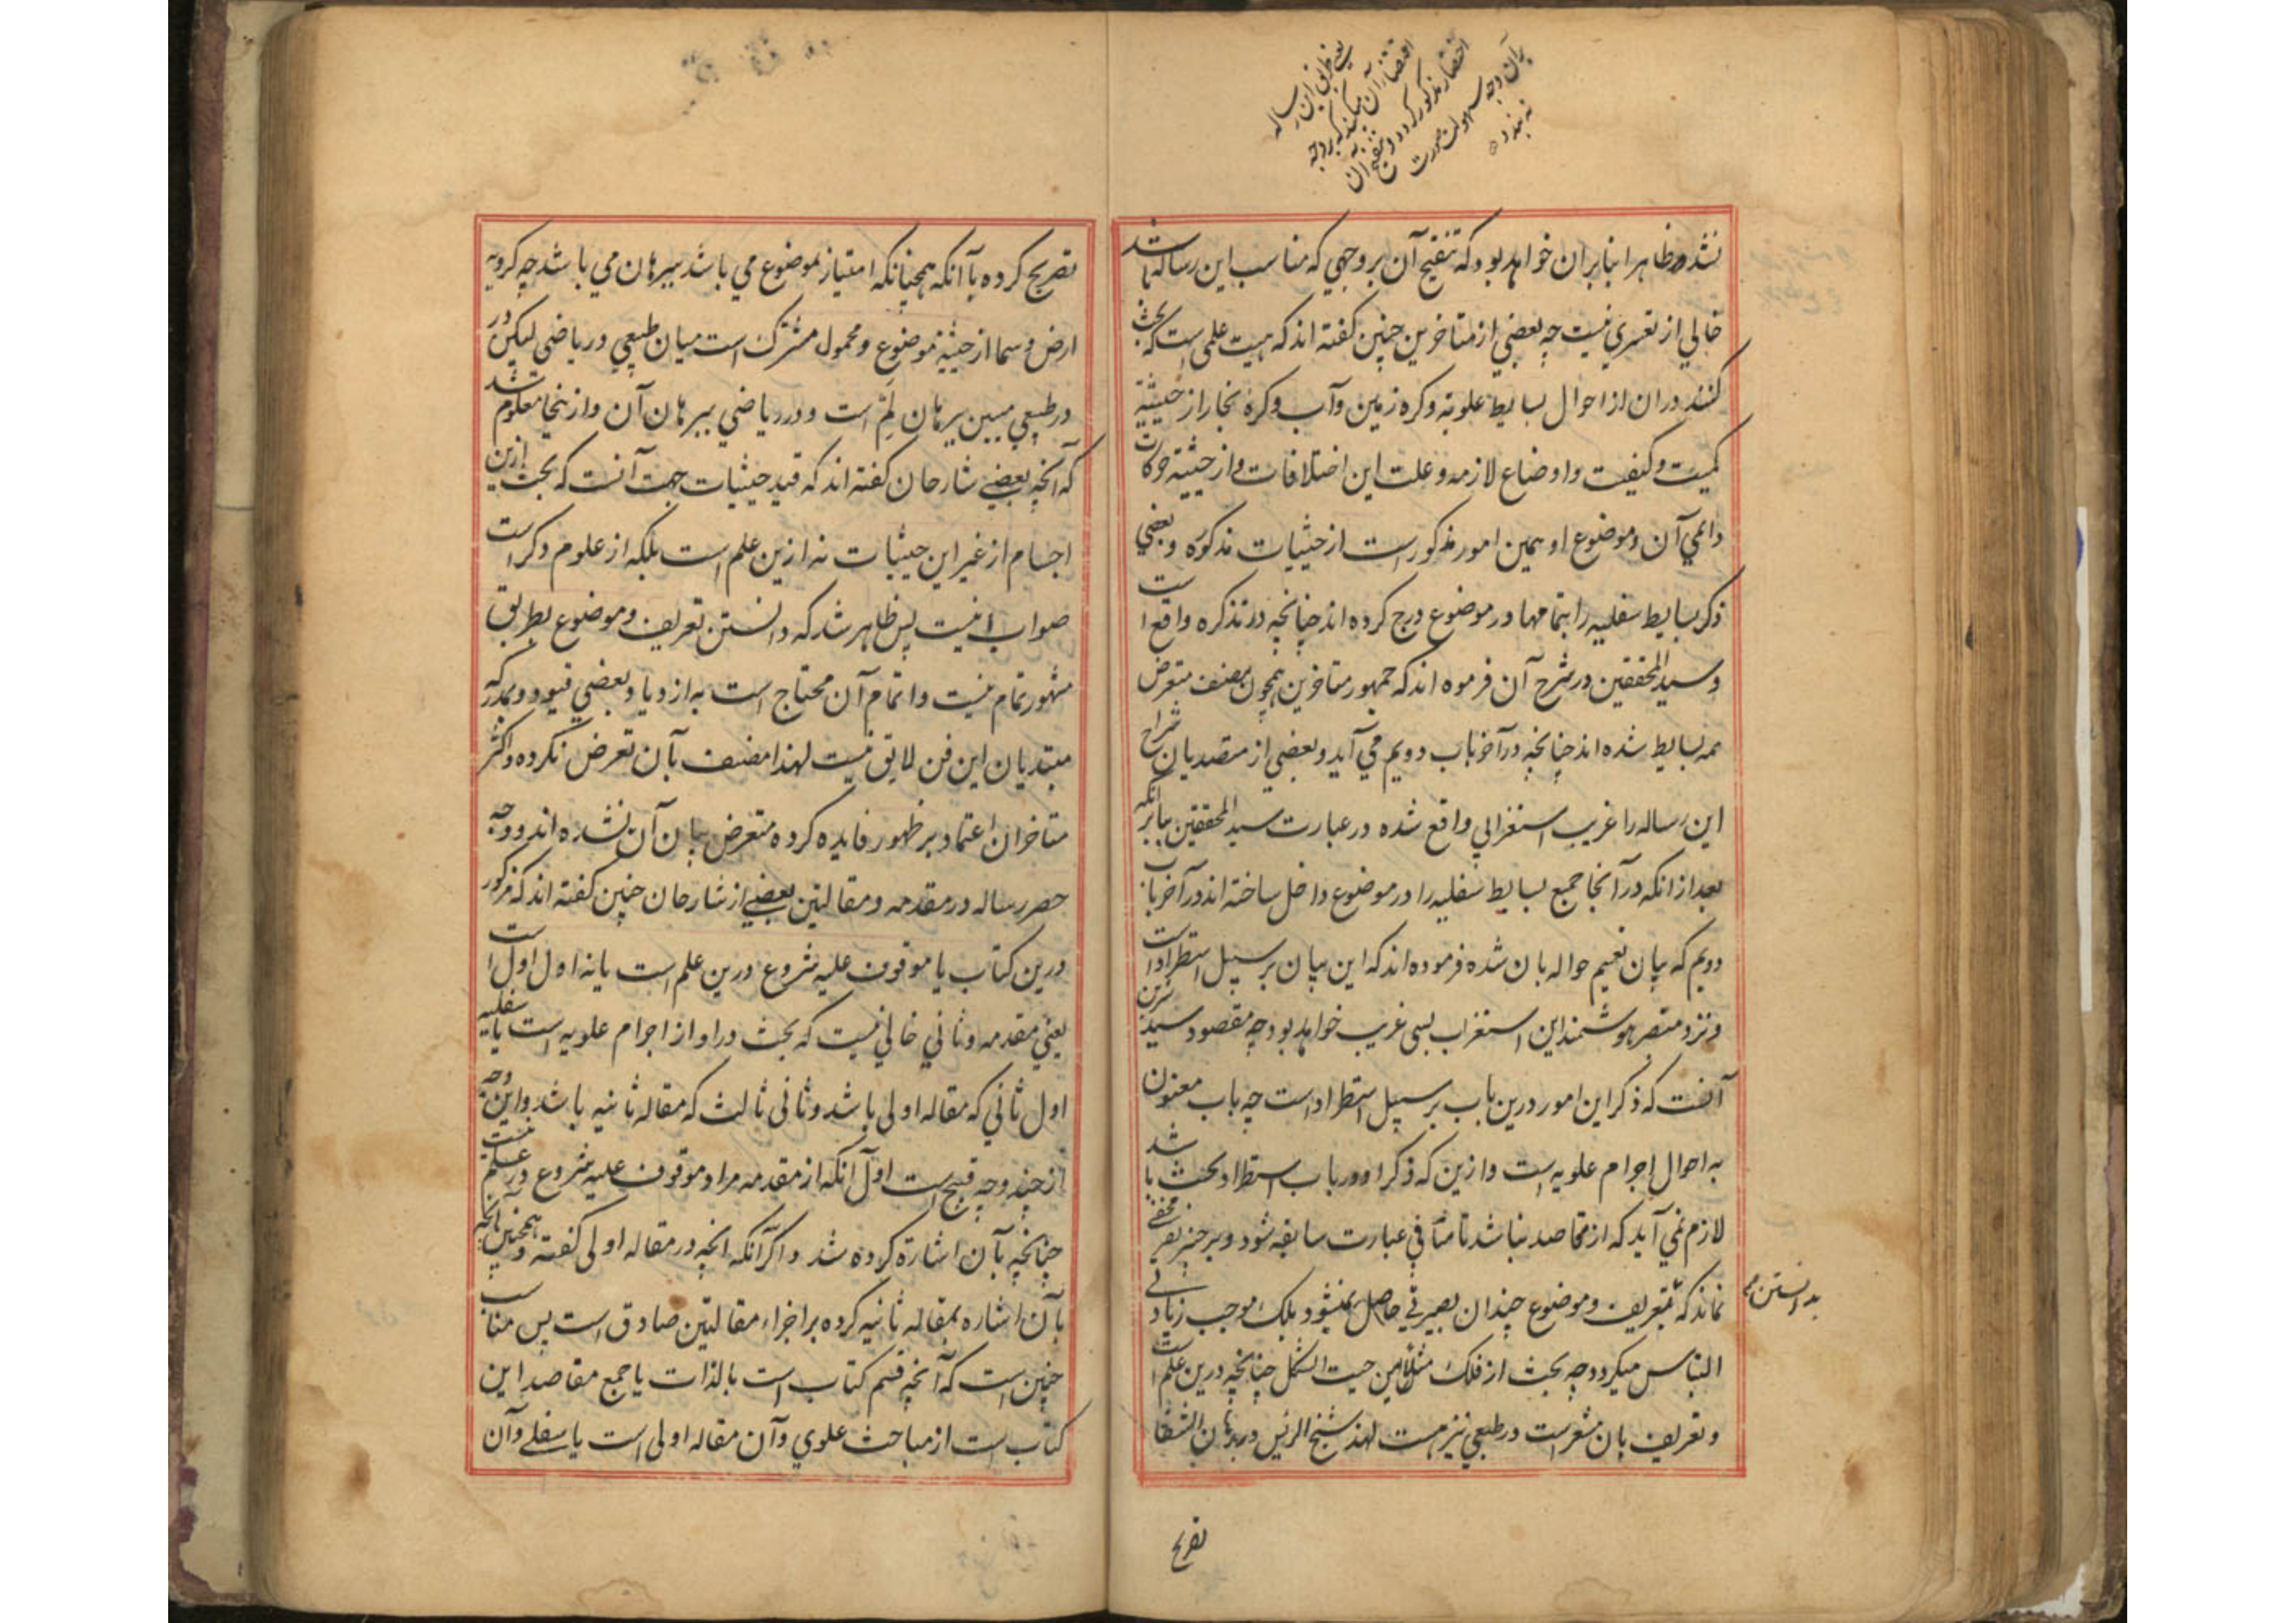 یعنی طریق این رساله
اختصار مذکور کردد و تنقیح آن
بر آن وجه سهولت صورت
نه بندد
نشده و ظاهرا بنابر آن خواهد بود که تنقیح آن بر وجهی که مناسب این رساله باشد
خالی از تعسری نیست چه بعضی از متاخرین چنین کفته اند که هیت علمی است که بحث
کنند در ان از احوال بسایط علویه و کره زمین و آب و کره بخار از حیثیة
کمیت و کیفیت و اوضاع لازمه و علت این اختلافات و از حیثیة حرکات
دائمی آن و موضوع او همین امور مذکور است از حیثیات مذکوره و بعضی
ذکر بسایط سفلیه را بتمامها در موضوع درج کرده اند چنانچه در تذکره واقع است
و سید المحققین در شرح آن فرموه اند که جمهور متاخرین همچون مصنف متعرض
همه بسایط شده اند چنانچه در آخر باب دویم می آید و بعضی از متصدیان شراح
این رساله را غریب استغرابی واقع شده در عبارت سید المحققین بنابر انکه
بعد از انکه در آنجا جمیع بسایط سفلیه را در موضوع داخل ساخته اند در آخر باب
دویم که بیان تعمیم حواله بان شده فرموده اند که این بیان بر سبیل استطراد است
و نزد متبصر هوشمند این استغراب بسی غریب خواهد بود چه مقصود سید
آنست که ذکر این امور درین باب بر سبیل استطراد است چه باب معنون
به احوال اجرام علویه است و ازین که ذکر او در باب استطراد بحث باشد
لازم نمی آید که از مقاصد نباشد تا منافی عبارت سابقه شود و بر خبیر مخفی
نماند که بتعریف و موضوع چندان بصیرتی حاصل نمیشود بلکه موجب زیادتی
بدانستن
التباس میکردد چه بحث از فلک مثلا من حیث الشکل چنانچه درین علم است
و تعریف بان مشعر است در طبیعی نیز هست لهذا شیخ الرئیس در برهان الشفا
تصریح
تصریح کرده بآنکه همچنانکه امتیاز بموضوع می باشد ببرهان می باشد چه کرویه
ارض و سما از حیثیة موضوع و محمول مشترک است میان طبیعی و ریاضی لیکن در
در طبیعی مبین ببرهان لم است و در ریاضی ببرهان آن و ازینجا معلوم شد
که آنچه بعضی شارحان کفته اند که قید حیثیات جهت آنست که بحث ازین
اجسام از غیر این حیثیات نه ازین علم است بلکه از علوم دکر است
صواب نیست پس ظاهر شد که دانستن تعریف و موضوع بطریق
مشهور تمام نیست و اتمام آن محتاج است به ازدیاد بعضی قیود و بمدرکه
مبتدیان این فن لایق نیست لهذا مصنف بآن تعرض نکرده و اکثر
متاخران اعتماد بر ظهور فایده کرده متعرض بیان آن نشده اند و وجه
حصر رساله در مقدمه و مقالتین بعضی از شارحان چنین کفته اند که مذکور
درین کتاب یا موقوف علیه شروع درین علم است یا نه اول اول است
یعنی مقدمه و ثانی خالی نیست که بحث در او از اجرام علویه است یا سفلیه
اول ثانی که مقاله اولی باشد و ثانی ثالث که مقاله ثانیه باشد و این وجه
از چند وجه قبیح است اول آنکه از مقدمه مراد موقوف علیه شروع در علم نیست
چنانچه بآن اشارة کرده شد و اکر آنکه انچه در مقاله اولی کفته و همچنین آنچه
بآن اشاره بمقاله ثانیه کرده بر اجزاء مقالتین صادق است پس مناسب
چنین است که آنچه قسم کتاب است بالذات یا جمیع مقاصد این
کتاب است از مباحث علوی و آن مقاله اولی است یا سفلی و آن